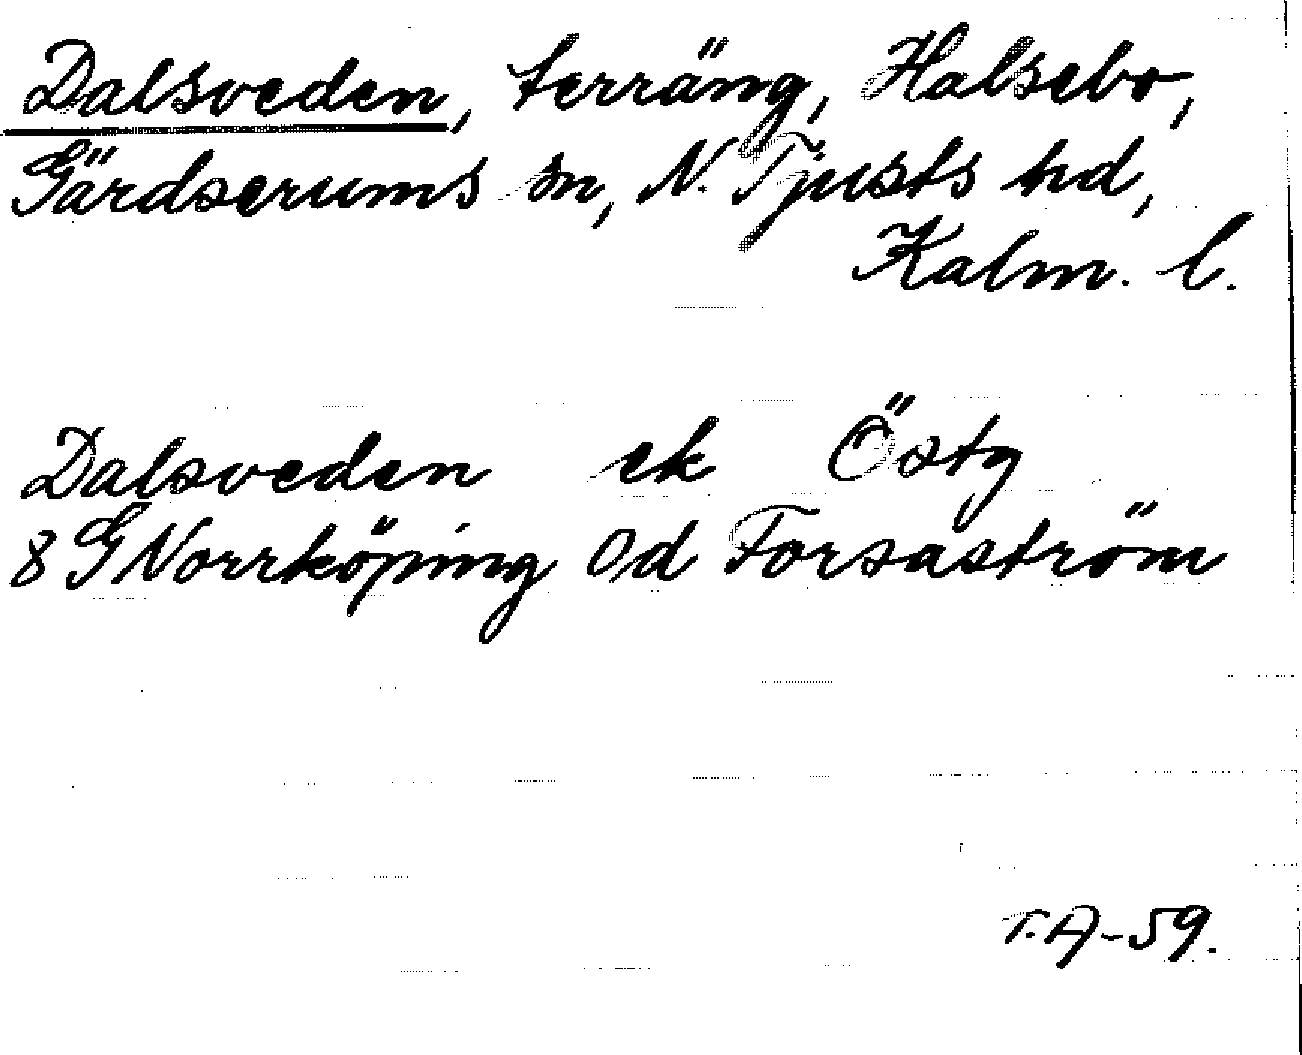 Dalsveden, terräng, Halsebo,
Gärdserums sn, N. Tjusts hd,
Kalm. l.
Dalsveden ek Östg
8 G Norrköping 0d Forsaström
T.A-59.